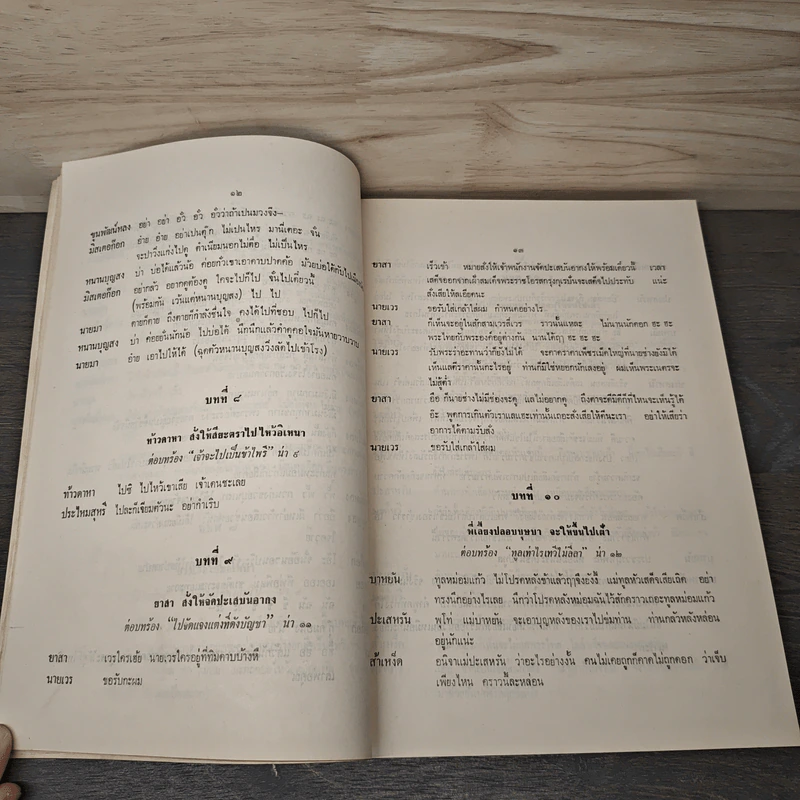 ๑๒
ขุมพัฒน์หลง อย่า อย่า อ๋วิ อ๋วิ อ๋วิว่าถ้าเปนมวงจึง—
มิสเตอก๊อก อ๋าย อ๋าย อย่าเปนตุ๊ก ไม่เปนไหร มานี่เคอะ ฉัน
จะปาวึ่งแก่งไปดู ตำเนียมนอกไม่ถือ ไม่เปนไหร
หนานบุญสง บ่า บ่อได้แล้วน้อ ค่อยกั๋วเขาเอาคาบปากค้อ
มิสเตอก๊อก อย่ากลัว อยากดูต้องดู ใคจะไปก็ไป ฉันไปเดี๋ยวนี้
(พร้อมกัน เว้นแต่หนานบุญสง) ไป ไป
นายมา ตายก็ตาย ถึงตายก็กำลังชื่นใจ คงได้ไปที่ชอบ ไปก็ไป
หนานบุญสง บ่า ค่อยยั่นนักน้อ ไปบ่อได้
นายมา อ๋าย เอาไปให้ได้ (ฉุดตัวหนานบุญสงวิ่งลัดไปเข้าโรง)
บทที่ ๘
ท้าวดาหา สั่งให้สียะตราไปไหว้อิเหนา
ต่อบทร้อง “เจ้าจะไปเป็นข้าไพรี” น่า ๙
ท้าวดาหา ไปซิ ไปไหว้เขาเสีย เจ้าเคนชะเลย
ประไหมสุหรี ไปละก็เจียมตัวนะ อย่ากำเริบ
บทที่ ๙
ยาสา สั่งให้จัดปะเสบันอากง
ต่อบทร้อง “ไปจัดแจงแต่งที่ดังบัญชา” น่า ๑๑
ยาสา เวรใครเฮ้ย นายเวรใครอยู่ที่ทิมดาบบ้างหึ
นายเวร ขอรับกะผม
๑๓
ยาสา เร็วเข้า หมายสั่งให้เจ้าพนักงานจัดปะเสบันอากงให้พร้อมเดี๋ยวนี้ เวลา
เสด็จออกจากเฝ้าสมเด็จพระราชโอรสกรุงกุเรปันจะเสด็จไปประทับ แน่ะ
สั่งเสียให้ลเอียดนะ
นายเวร ขอรับใส่เกล้าใส่ผม กำหนดอย่างไร
ยาสา ก็เห็นจะอยู่ในสักสามเวรสี่เวร ราวนั้นแหละ ไม่นานนักดอก ฮะ ฮะ
พระไทยกับพระองค์ก็อยู่ด้างกัน นานได้ฤๅ ฮะ ฮะ ฮะ
นายเวร รับพระร่าอะทานว่าก็ยังไม่ได้ จะคาดราคาเพ็ชรเม็ดใหญ่ที่นายช่างยังมิได้
เห็นแลตีราคานั้นคะไรอยู่ ท่านก็มิใช่หยอกนักเลงอยู่ ผมเห็นพระเนตรจะ
ไม่สู้ต่ำ
ยาสา อือ ก็นายช่างไม่มีช่องจะดู แลไม่อยากดู
อ๊ะ พูดการเกินตัวเราแลแยะเท่านั้นเถอะสั่งเสียให้ดีนะเรา อย่าให้เสียรา
อาการได้ตามรับสั่ง
นายเวร ขอรับใส่เกล้าใส่ผม
บทที่ ๑๐
พี่เลี้ยงปลอบบุษบา จะให้ขึ้นไปเฝ้า
ต่อบทร้อง “ทูลเท่าไรเทวีไม่ลีลา” น่า ๑๒
บาหยัน ทูลหม่อมแก้ว ไม่โปรดหลังข้าแล้วฤๅจึงยังงี้ แม่ทูลหัวเสด็จเสียเถิด อย่า
ทรงนึกอย่างไรเลย นึกว่าโปรดหลังหม่อมฉันไว้สักคราวเถอะทูลหม่อมแก้ว
ปะเสหรัน พุโท่ แม่บาหยัน จะเอาบุญหลังของเราไปข่มท่าน ท่านกลัวหลังหล่อน
อยู่นักแน่ะ
ส้าเหง็ด อนิจาแม่ปะเสหรัน ว่าอะไรอย่างงั้น คนไม่เคยถูกก็คาดไม่ถูกดอก ว่าเจ็บ
เพียงไหน คราวนี้ละหล่อน